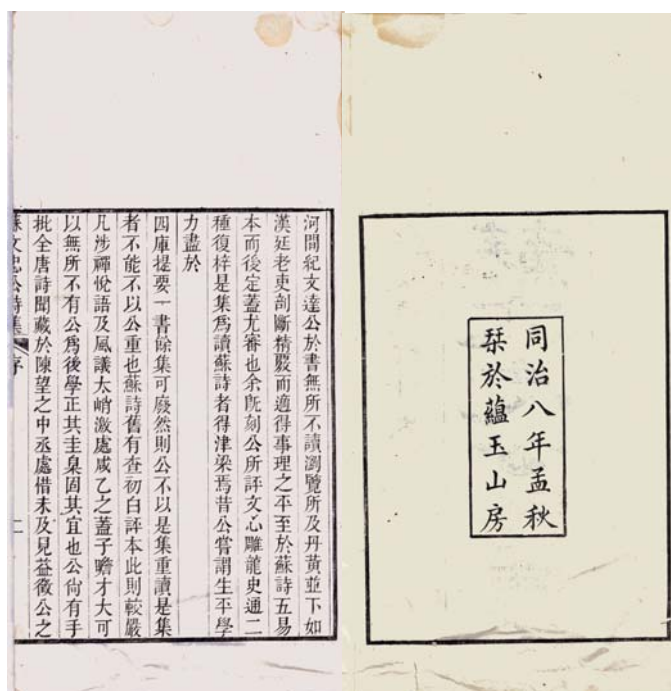 同治八年孟秋
栞於蘊玉山房
河間紀文達公於書無所不讀瀏覽所及丹黃並下如
漢廷老吏剖斷精覈而適得事理之平至於蘇詩五易
本而後定蓋尤審也余既刻公所評文心雕龍史通二
種復梓是集爲讀蘇詩者得津梁焉昔公嘗謂生平學
力盡於
四庫提要一書餘集可廢然則公不以是集重讀是集
者不能不以公重也蘇詩舊有查初白評本此則較嚴
凡涉禪悅語及風議大峭激處咸乙之蓋子瞻才大可
以無所不有公爲後學正其圭臬固其宜也公尙有手
批全唐詩聞藏於陳望之中丞處惜未及見益徵公之
蘇文忠公詩集 序 二